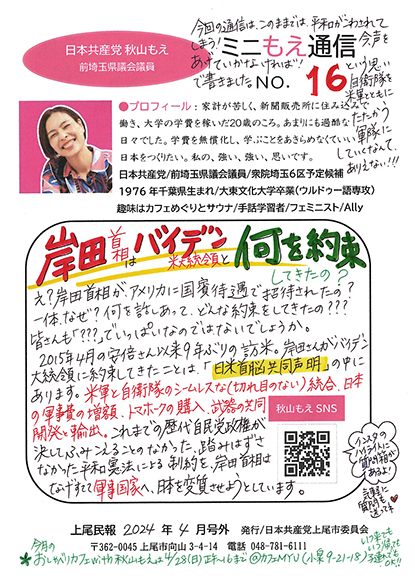 日本共産党 秋山もえ
前埼玉県議会議員
今回の通信は、このままでは、平和がこわされて
しまう!今声を
あげていかなければ!
という思い
で書きました。
ミニもえ通信
NO. 16
自衛隊を
米軍とともに
たたかう
軍隊に
していくなんて、
ありえない!!!
●プロフィール:家計が苦しく、新聞販売所に住み込みで
働き、大学の学費を稼いだ20歳のころ。あまりにも過酷な
日々でした。学費を無償化し、学ぶことをあきらめなくていい
日本をつくりたい。私の、強い、強い、思いです。
日本共産党/前埼玉県議会議員/衆院埼玉6区予定候補
1976年千葉県生まれ/大東文化大学卒業(ウルドゥー語専攻)
趣味はカフェめぐりとサウナ/手話学習者/フェミニスト/Ally
岸田首相はバイデン米大統領と何を約束
してきたの?
え?岸田首相が、アメリカに国賓待遇で招待されたの?
一体、なぜ?何を話しあって、どんな約束をしてきたの???
皆さんも「???」でいっぱいなのではないでしょうか。
2015年4月の安倍さん以来9年ぶりの訪米。岸田さんがバイデン
大統領に約束してきたことは、「日米首脳共同声明」の中に
あります。米軍と自衛隊のシームレスな(切れ目のない)統合、日本
の軍事費の増額、トマホークの購入、武器の共同
開発と輸出。これまでの歴代自民党政権が
決してふみこえることのなかった、踏みはずさ
なかった平和憲法による制約を、岸田首相は
なげすてて軍事国家へ、日本を変質させようとしています。
秋山もえ SNS
インスタの
ハイライトに
質問箱が
あるよ!
気軽に
質問を
送ってネ
上尾民報 2024年4月号外 発行/日本共産党上尾市委員会
〒362-0045 上尾市向山3-4-14 電話 048-781-6111
今月の
おしゃべりカフェwith秋山もえは4/28(日)正午〜16まで@カフェMYU(小泉9-21-18)
いつ来ても
いつ帰っても
OK!!